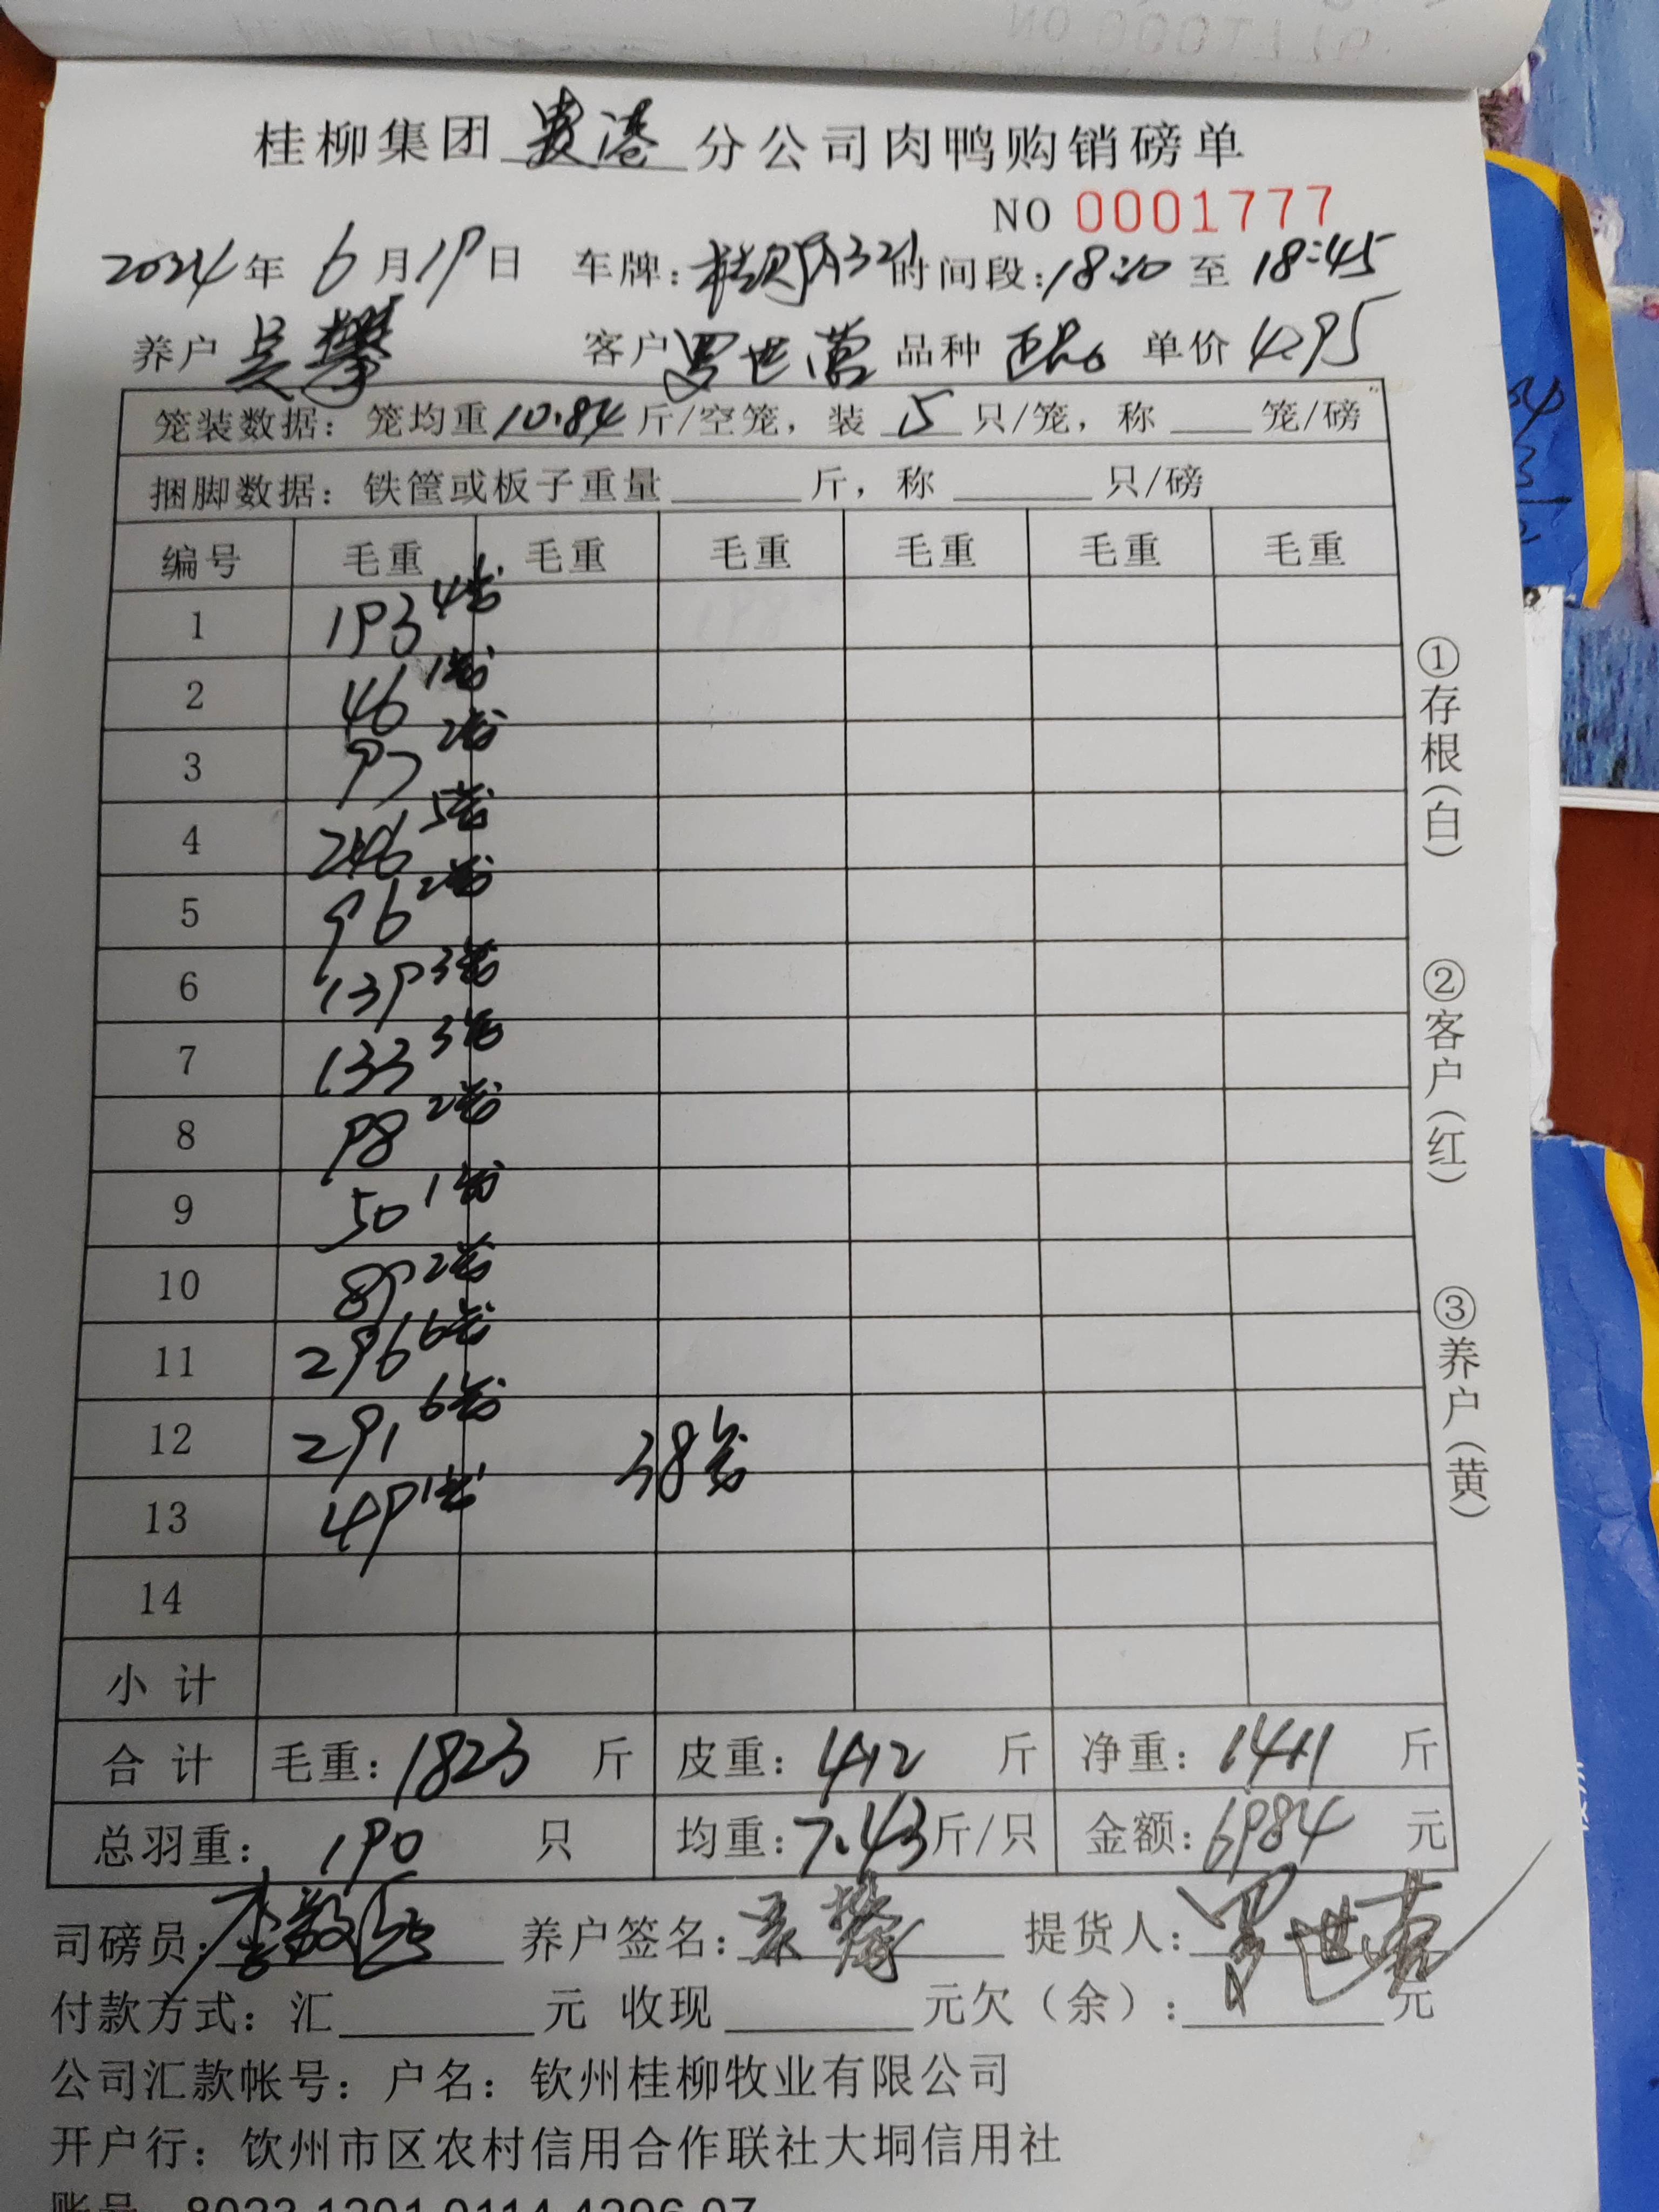 桂柳集团 贵港 分公司肉鸭购销磅单
NO 0001777
2024年 6月19日 车牌: 时间段:18:10 至 18:45
养户 吴攀 客户 罗世 品种 单价 4.95
笼装数据: 笼均重 10.84 斤/空笼, 装 5 只/笼, 称 笼/磅
捆脚数据: 铁筐或板子重量 斤, 称 只/磅
编号 毛重 毛重 毛重 毛重 毛重 毛重
1 193 4笼
2 46 1笼
3 97 2笼
4 246 5笼
5 96 2笼
6 139 3笼
7 133 3笼
8 98 2笼
9 50 1笼
10 89 2笼
11 296 6笼
12 291 6笼 38笼
13 49 1笼
14
小 计
合 计 毛重: 1823 斤 皮重: 412 斤 净重: 1411 斤
总羽重: 190 只 均重: 7.43 斤/只 金额: 6984 元
司磅员: 李 养户签名: 吴攀 提货人: 罗世
付款方式: 汇 元 收现 元欠(余): 元
公司汇款帐号: 户名: 钦州桂柳牧业有限公司
开户行: 钦州市区农村信用合作联社大垌信用社
①存根(白)
②客户(红)
③养户(黄)